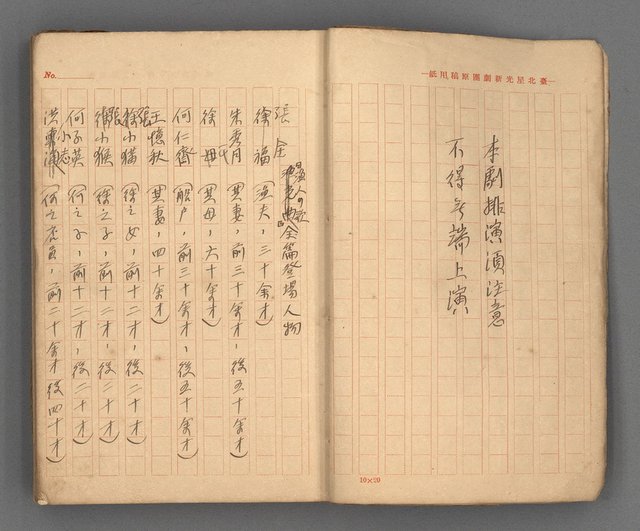 臺北星光新劇團原稿用紙
本劇排演須注意
不得無端上演
10×20
No.
漁人の歌
全篇登場人物
張全
徐福（漁夫，三十余才）
朱秀月（其妻，前三十余才，後五十余才）
徐母（其母，六十余才）
何仁齋（船户，前三十余才，後五十余才）
王憶秋（其妻，四十余才）
張
徐小猫（徐之女，前十二才，後二十才）
張
徐小猴（徐之子，前十二才，後二十才）
何子英（何之子，前十二才，後二十才）
小志
洪（何之店員，前二十余才後四十才）